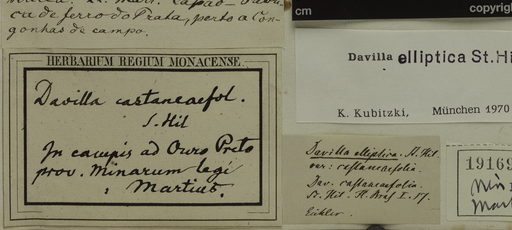 cia de ferro do Prata, perto a Con-
gonhas de campo.
HERBARIUM REGIUM MONACENSE.
Davilla castaneaefol.
S. Hil
In campis ad Ouro Preto
prov. Minarum legi
Martius.
cm
copyrig
Davilla elliptica St. Hi
K. Kubitzki, München 1970
Davilla elliptica. St. Hil.
var: castaneaefolia.
Dav. castaneaefolia.
St. Hil. Fl. Bras I. 17.
Eichler.
19169
Min
Mart